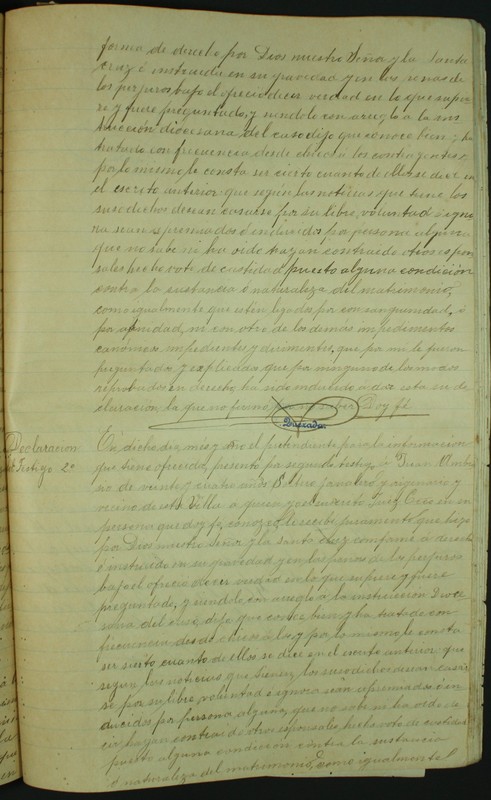 forma de derecho por Dios nuestro Señor y la santa
cruz é instruido en su gravedad y en las penas de
los perjuros bajo él ofreció decir verdad en lo que supie
re y fuere preguntado, y siendole con arreglo a la ins
trucción diocesana del caso dijo que conoce bien y ha
tratado con frecuencia desde chicos á los contrayentes,
por lo mismo le consta ser cierto cuanto de ellos se dice en
el escrito anterior que según las noticias que tiene los
susodichos desean casarse por su libre voluntad é igno
ra sean apremiados ó inducidos por persona alguna
que no sabe ni ha oido hayan contraido otros espon
sales hecho voto de castidad puesto alguna condición
contra la sustancia ó naturaleza del matrimonio,
como igualmente que esten ligados por consanguinidad, ó
por afinidad, ni con otro de los demás impedimentos
canónicos impedientes y dirimentes, que por mi le fueron
preguntados y esplicados que por ninguno de los modos
reprobados en derecho ha sido inducido á dar esta su de
claracion la que no firmó por no saber Doy fé
Declaracion
Testigo 2º
En dicho dia, mes y año el pretendiente para la informacion
que tiene ofrecida, presentó por segundo testigo á Juan
no de veinte y cuatro años soltero jornalero y originario y
vecino de esta Villa a quien
persona que doy fé conozco, le recibe juramento que hizo
por Dios nuestro Señor y la santa cruz conforme á derecho
é instruido en su gravedad y en las penas de los perjuros
bajo él ofreció decir verdad en lo que supiere y fuere
preguntado, y siendole con arreglo a la instrucción Dioce
sana del caso dijo que conoce bien y ha tratado con
frecuencia desde chicos á los y por lo mismo le consta
ser cierto cuanto de ellos se dice en el escrito anterior que
segun las noticias que tiene, los susodichos desean casar
se por su libre voluntad é ignora sean apremiados ó in
ducidos por persona alguna, que no sabe ni ha oido de
cir hayan contraido otros esponsales, hecho voto de castidad
puesto alguna condicion contra la sustancia
ó naturaleza del matrimonio, como igualmente